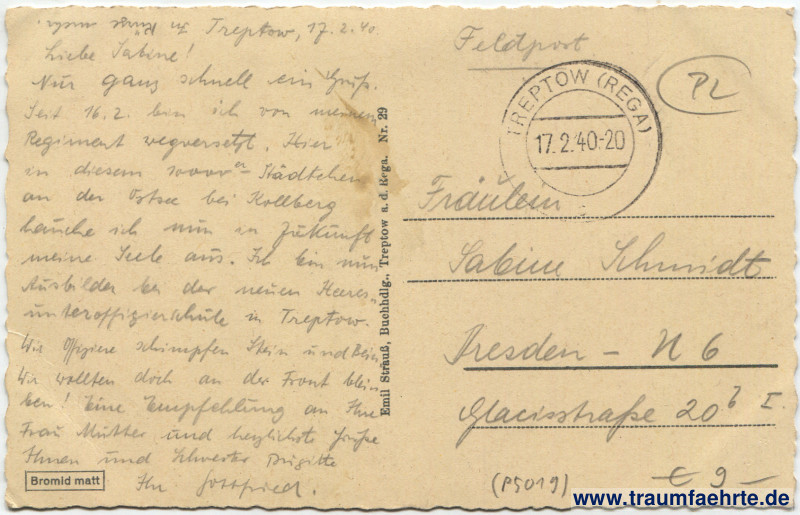 Treptow, 17.2.40
Liebe Sabine!
Nur ganz schnell ein Gruß.
Seit 16.2. bin ich von meinem
Regiment wegversetzt. Hier
in diesem 10000er Städtchen
an der Ostsee bei Kollberg
hauche ich nun in Zukunft
meine Seele aus. Ich bin nun
Ausbilder bei der neuen Heeres-
unteroffizierschule in Treptow.
Wir Offiziere schimpfen Stein und Bein
Wir wollten doch an der Front blei-
ben! Eine Empfehlung an Ihre
Frau Mutter und herzlichste Grüße
Ihnen und Schwester Brigitte
Ihr Gottfried.
Bromid matt
Emil Strauß, Buchhdlg., Treptow a. d. Rega. Nr. 29
Feldpost
TREPTOW (REGA)
17.2.40-20
PL
Fräulein
Sabine Schmidt
Dresden - N 6
Glacisstraße 20b I.
(P5019)
€ 9-
www.traumfaehrte.de